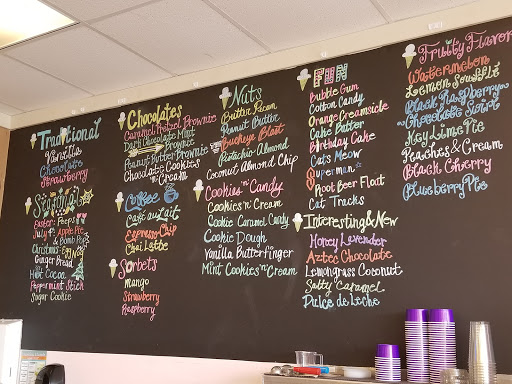 Traditional
Vanilla
Chocolate
Strawberry
Seasonal
Easter: Peeps
July 4th: Apple Pie
& Bomb Pops
Christmas: Egg Nog
Ginger Bread
Hot Cocoa
Peppermint Stick
Sugar Cookie
Chocolates
Caramel Pretzel Brownie
Dark Chocolate Mint
Peanut Butter Brownie
Chocolate Cookies
'n' Cream
Coffee
Café au Lait
Espresso Chip
Chai Latte
Sorbets
Mango
Strawberry
Raspberry
Nuts
Butter Pecan
Peanut Butter
Buckeye Blast
Pistachio-Almond
Coconut Almond Chip
Cookies 'n' Candy
Cookies 'n' Cream
Cookie Caramel Candy
Cookie Dough
Vanilla Butterfinger
Mint Cookies 'n' Cream
FUN
Bubble Gum
Cotton Candy
Orange Creamsicle
Cake Batter
Birthday Cake
Cats Meow
Superman
Root Beer Float
Cat Tracks
Interesting & New
Honey Lavender
Aztec Chocolate
Lemongrass Coconut
Salty Caramel
Dulce de Leche
Fruity Flavor
Watermelon
Lemon Soufflé
Black Raspberry
Chocolate Swirl
Key Lime Pie
Peaches & Cream
Black Cherry
Blueberry Pie